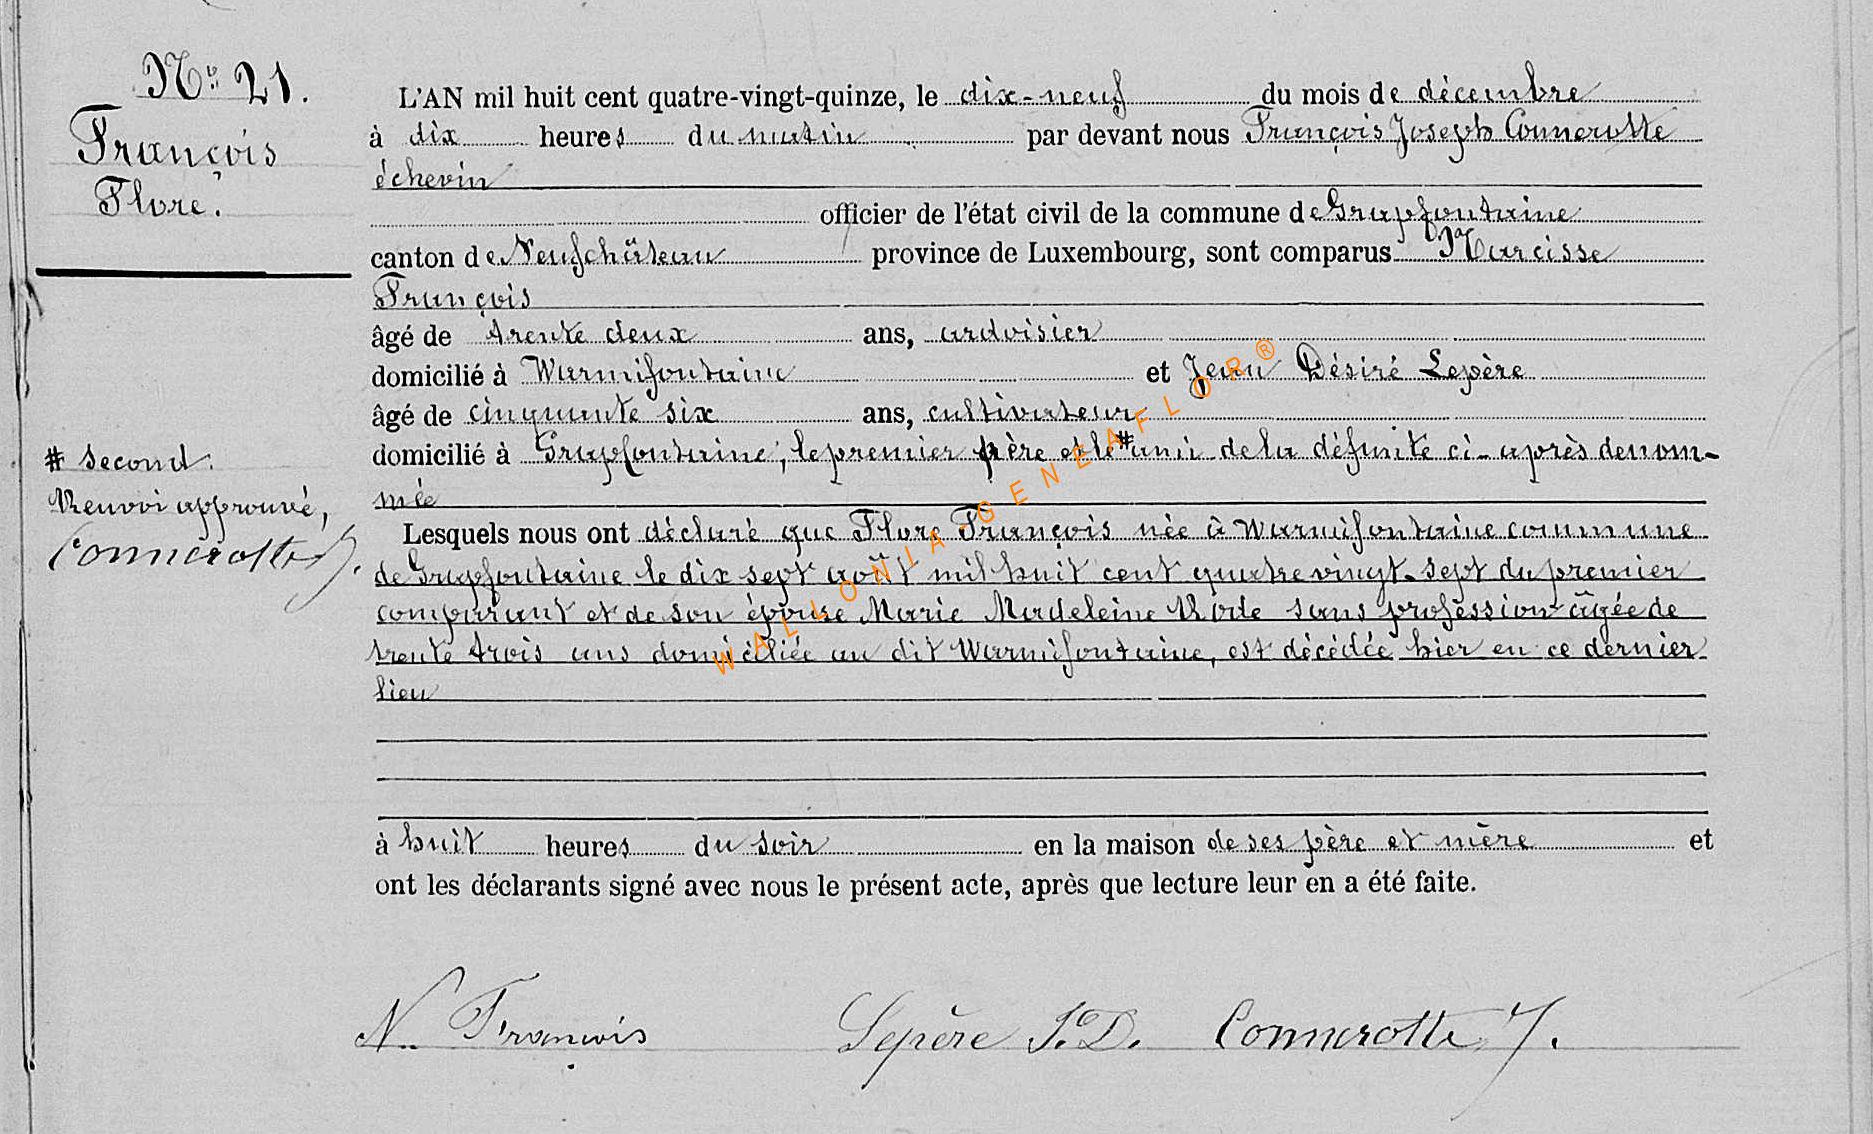 No 21.
François
Flore.
L'AN mil huit cent quatre-vingt-quinze, le dix-neuf du mois de décembre
à dix heures du matin par devant nous François Joseph Connerotte
échevin
officier de l'état civil de la commune de Grapfontaine
canton de Neufchâteau province de Luxembourg, sont comparus Narcisse
François
âgé de trente deux ans, ardoisier
domicilié à Warmifontaine et Jean Désiré Lepère
âgé de cinquante six ans, cultivateur
domicilié à Grapfontaine, le premier père et le # ami de la défunte ci-après denom-
mée
# second.
Renvoi approuvé,
Connerotte J.
Lesquels nous ont déclaré que Flore François née à Warmifontaine commune
de Grapfontaine le dix sept août mil huit cent quatre vingt-sept du premier
comparant et de son épouse Marie Madeleine sans profession âgée de
trente trois ans domiciliée au dit Warmifontaine, est décédée hier en ce dernier
lieu
à huit heures du soir en la maison de ses père et mère et
ont les déclarants signé avec nous le présent acte, après que lecture leur en a été faite.
N. François Lepère J.D. Connerotte J.
WALLONIA-GENEAFLOR®